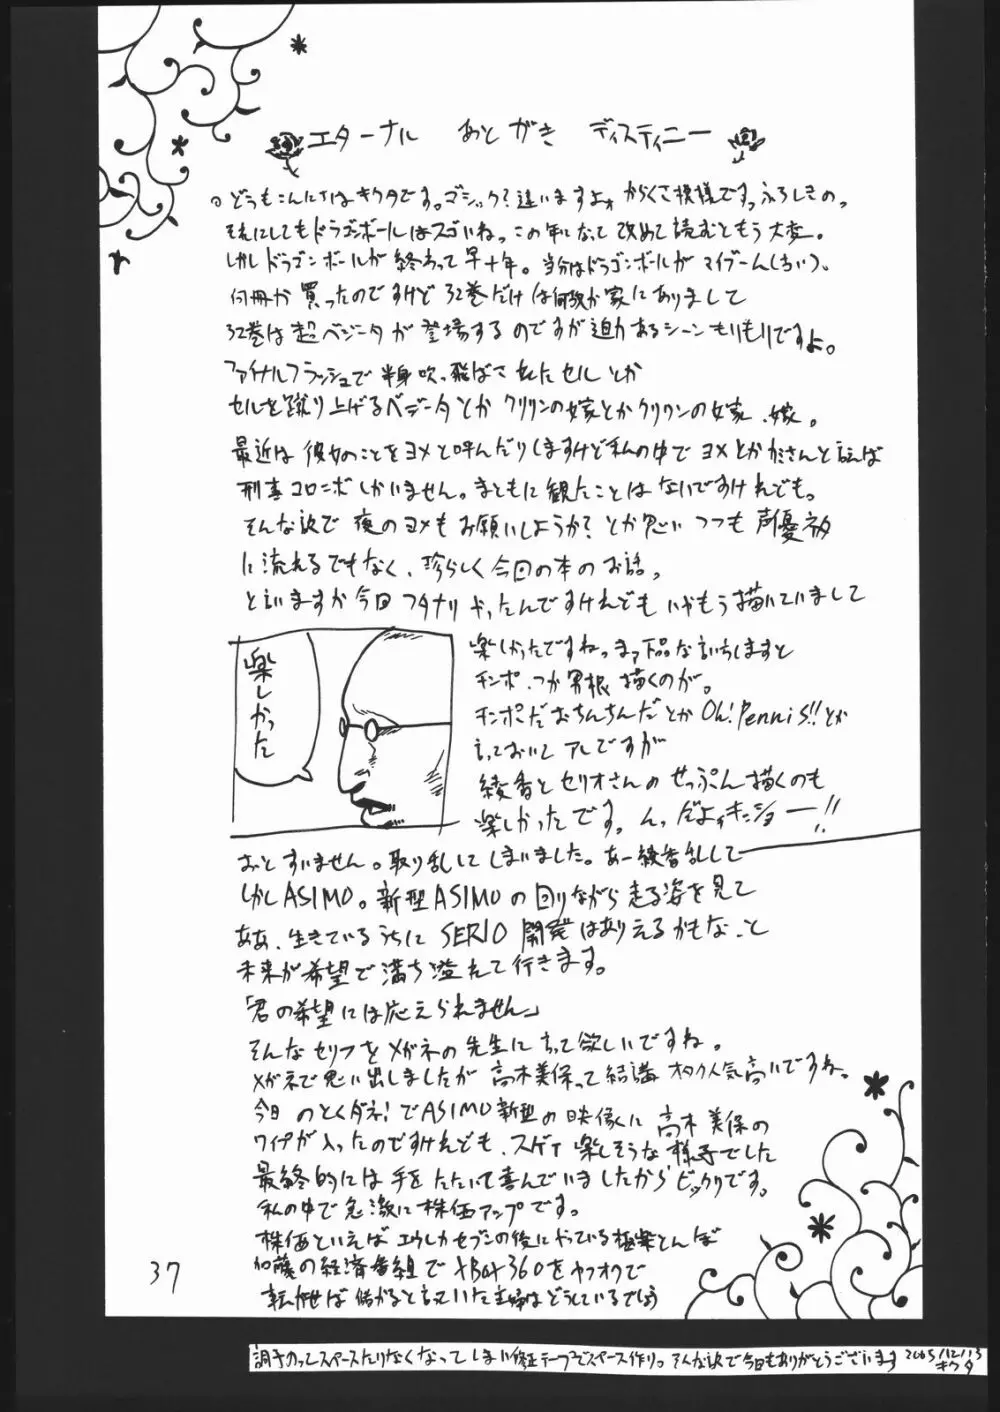 エターナル あとがき ディスティニー
。どうもこんにちはキクタです。ゴシック?違いますよォからくさ模様です。ふろしきの。
それにしてもドラゴンボールはスゴいね。この年になって改めて読むともう大変。
しかしドラゴンボールが終わって早十年。当分はドラゴンボールがマイブーム(ちい)。
何冊か買ったのですけど32巻だけは何故か家にありまして
32巻は超ベジータが登場するのですが迫力あるシーンもりもりですよ。
ファイナルフラッシュで半身吹っ飛ばされたセルとか
セルを蹴り上げるベジータとかクリリンの嫁とかクリリンの嫁、嫁。
最近は彼女のことをヨメと呼んだりしますけど私の中でヨメとかカミさんと言えば
刑事コロンボしかいません。まともに観たことはないですけれども。
そんな訳で夜のヨメもお願いしようか?とか思いつつも声優ネタ
に流れるでもなく、珍らしく今回の本のお話。
と言いますか今回フタナリやったんですけれどもいやもう描いていまして
楽しかった
楽しかったですね。まァ下品な言いもしますと
チンポ、つか男根描くのが。
チンポだおちんちんだとかOh!PenniS!!とか
言っておいてアレですが
綾香とセリオさんのせっぷん描くのも
楽しかったです。んっだよォキンショー!!
おとすいません。取り乱してしまいました。あー綾香乱して
しかしASIMO。新型ASIMOの回りながら走る姿を見て
ああ、生きているうちにSERIO開発はありえるかもな、と
未来が希望で満ち溢れて行きます。
「君の希望には応えられません」
そんなセリフをメガネの先生に言って欲しいですね。
メガネで思い出しましたが高木美保って結構オタク人気高いですね。
今日のとくダネ!でASIMO新型の映像に高木美保の
ワイプが入ったのですけれども、スゲェ楽しそうな様子でした
最終的には手をたたいて喜んでいましたからビックリです。
私の中で急激に株価アップです。
株価といえばエウレカセブンの後にやっている極楽とんぼ
加藤の経済番組でXBOX360をヤフオクで
転がせば儲かると言っていた主婦はどうしているでしょう
37
調子のってスペースたりなくなってしまい修正テープでスペース作り。そんな訳で今日もありがとうございます 2005/12/13
キクタ